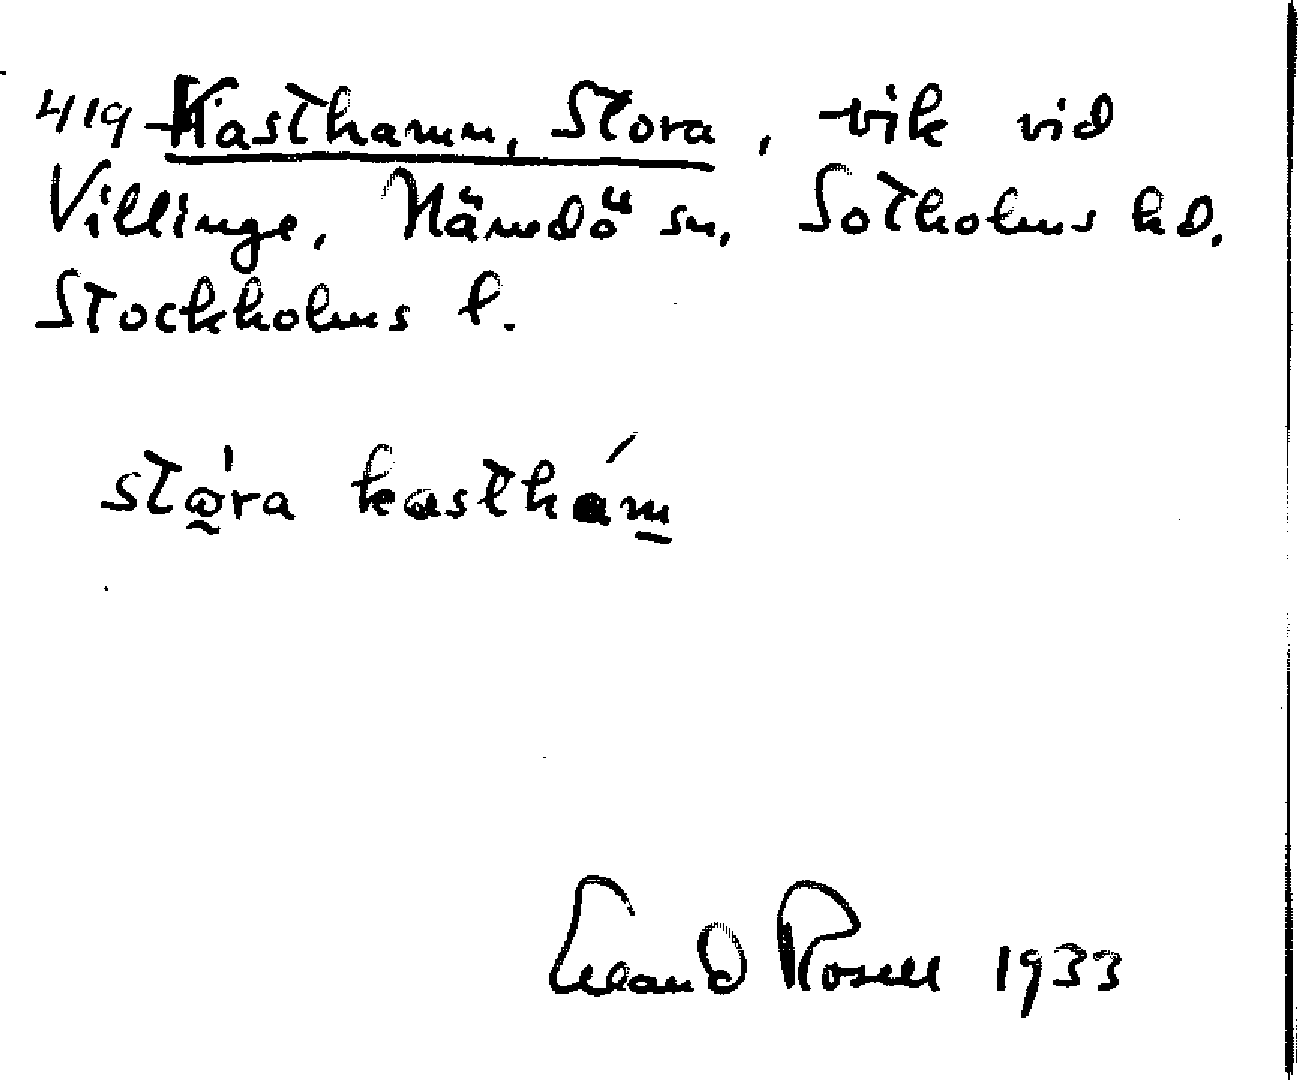 419 Kasthamn, Stora, vik vid
Villinge, Nämdö sn, Sotholms hd.
Stockholms l.
stω̰̍ra kasthámm̲
Erland Rosell 1933